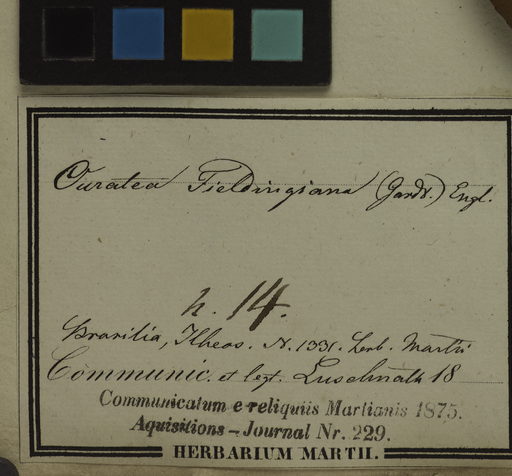 Ouratea Fieldingiana (Gardn.) Engl.
h. 14.
Brasilia, Ilheos. N. 1331. herb. Martii
Communic. et legt. Luschnath 18
Communicatum e reliquiis Martianis 1875.
Aquisitions - Journal Nr. 229.
HERBARIUM MARTII.